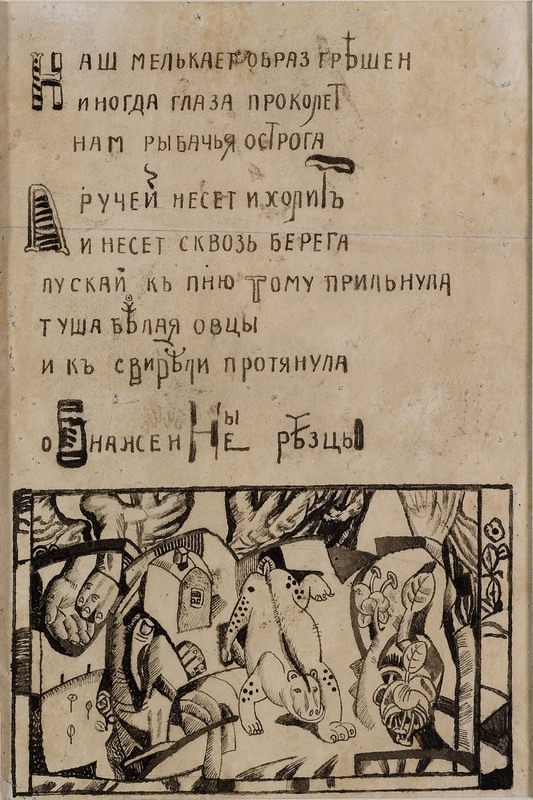 НАШ МЕЛЬКАЕТ ОБРАЗ ГРѢШЕН
ИНОГДА ГЛАЗА ПРОКОЛЕТ
НАМ РЫБАЧЬЯ ОСТРОГА
А РУЧЕЙ НЕСЕТ И ХОЛИТЪ
И НЕСЕТ СКВОЗЬ БЕРЕГА
ПУСКАЙ КЪ ПНЮ ТОМУ ПРИЛЬНУЛА
ТУША БѢЛАЯ ОВЦЫ
И КЪ СВИРѢЛИ ПРОТЯНУЛА
ОБНАЖЕННЫЕ РѢЗЦЫ